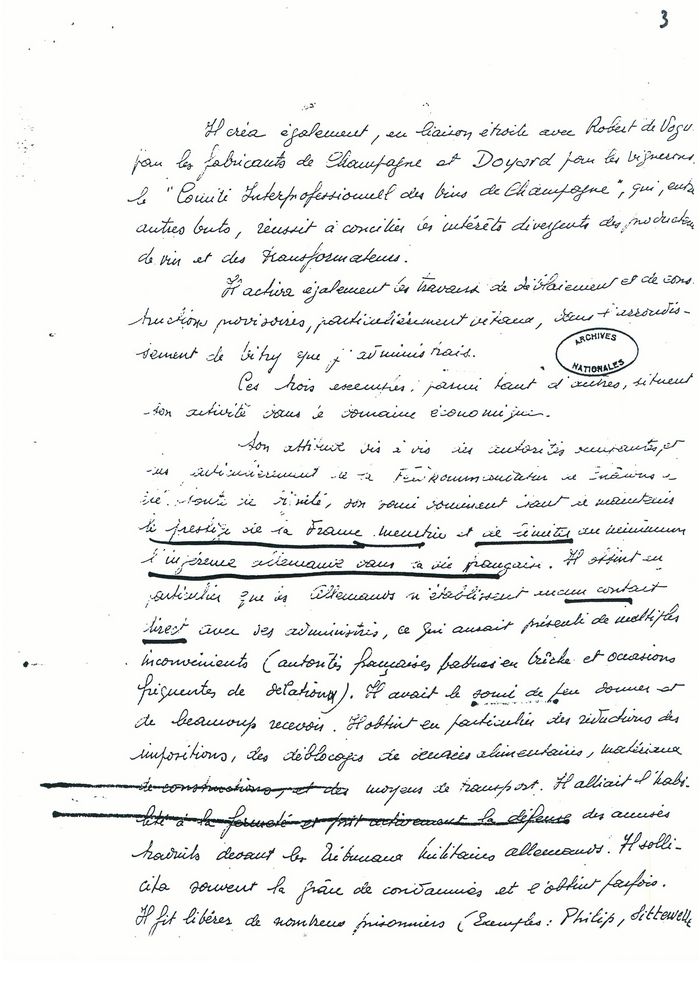 3
Il créa également, en liaison étroite avec Robert de Vogu
pour les fabricants de Champagne et Doyard pour les vignerons,
le "Comité Interprofessionnel des vins de Champagne", qui, entre
autres buts, réussit à concilier les intérêts divergents des producteu
de vin et des transformateurs.
Il activa également les travaux de déblaiement et de cons
tructions provisoires, particulièrement vitaux, dans l'arrondis-
sement de Vitry que j'administrais.
ARCHIVES
NATIONALES
Ces trois exemples, parmi tant d'autres, situent
son activité dans le domaine économique.
Son attitude vis à vis des autorités occupantes, et
particulièrement de la Feldkommandatur de Châlons
été toute de dignité, son souci dominant étant de maintenir
le prestige de la France meurtrie et de limiter au minimum
l'ingérence allemande dans la vie française. Il obtint en
particulier que les Allemands n'établissent aucun contact
direct avec ses administrés, ce qui aurait présenté de multiples
inconvénients (autorités françaises battues en brèche et occasions
fréquentes de délations). Il avait le souci de peu donner et
de beaucoup recevoir. Il obtint en particulier des réductions des
impositions, des déblocages de denrées alimentaires, matériaux
de constructions, et des moyens de transport. Il alliait l'habi-
leté à la fermeté et prit activement la défense des accusés
traduits devant les Tribunaux Militaires allemands. Il solli-
cita souvent la grâce de condamnés et l'obtint parfois.
Il fit libérer de nombreux prisonniers (Exemples: Philip,